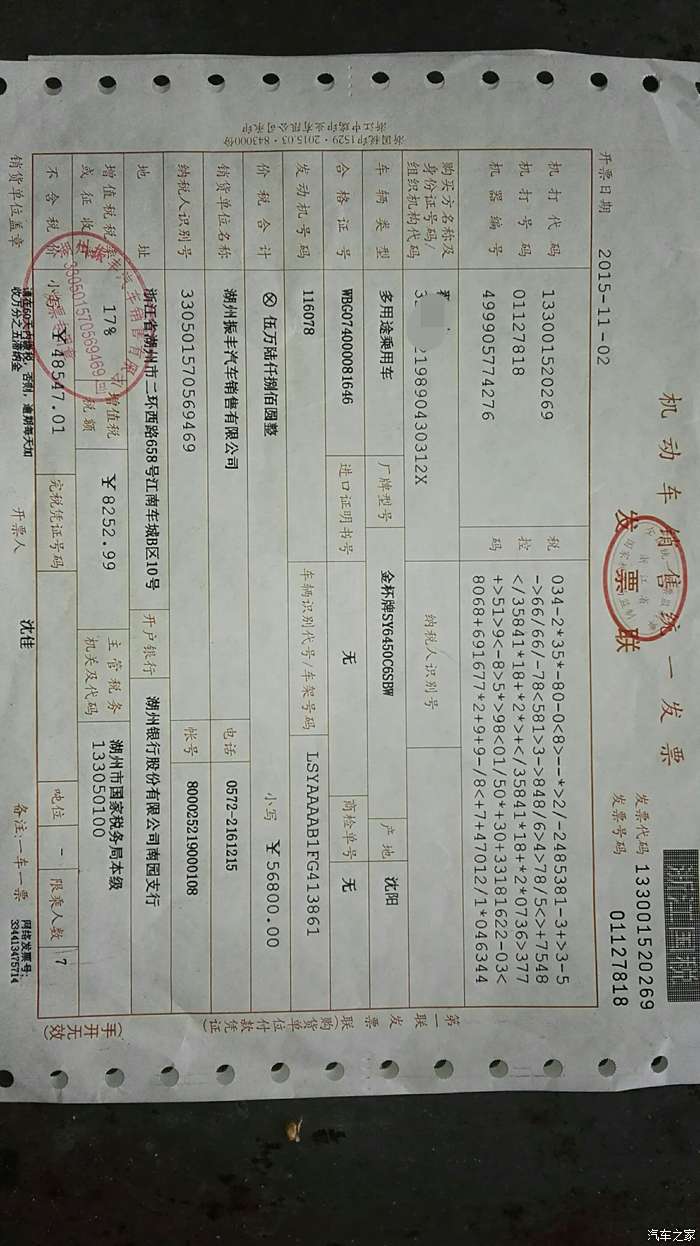 机动车销售统一发票
发票联
浙江国税
发票代码 133001520269
发票号码 01127818
开票日期 2015-11-02
机打代码 133001520269
机打号码 01127818
机器编号 499905774276
税控码
034-2*35*-80-0<8>--*>2/-2485381-3+>3-5
->66/66/-78<581>3->848/6>4>78/5<>+7548
</35841*18+*2*>+</35841*18+*2*0736>377
+>51>9<-8>5*>98<01/50*+30+33181622-03<
8068+691677*2+9+9-/8<+7+47012/1*046344
购买方名称及身份证号码/组织机构代码
3 219890430312X
纳税人识别号
车辆类型 多用途乘用车 厂牌型号 金杯牌SY6450C6SBW 产地 沈阳
合格证号 WBG074000081646 进口证明书号 无 商检单号 无
发动机号码 116078 车辆识别代号/车架号码 LSYAAAAB1FG413861
价税合计 ⊗伍万陆仟捌佰圆整 小写 ￥56800.00
销货单位名称 湖州振丰汽车销售有限公司 电话 0572-2161215
纳税人识别号 330501570569469 帐号 800025219000108
地址 浙江省湖州市二环西路658号江南车城B区10号 开户银行 湖州银行股份有限公司南园支行
增值税税率或征收率 17% 增值税税额 ￥8252.99 主管税务机关及代码 湖州市国家税务局本级 133050100
不含税价 小写 ￥48547.01 完税凭证号码 吨位 - 限乘人数 7
销货单位盖章 开票人 沈佳 备注:一车一票
请在60天内缴税，否则，逾期每天加收万分之五滞纳金
网络发票号: 334413475714
第一联 发票联(购货单位付款凭证)
(手开无效)
浙国税印1529·2015.03·843000份
330501570569469
汽车之家